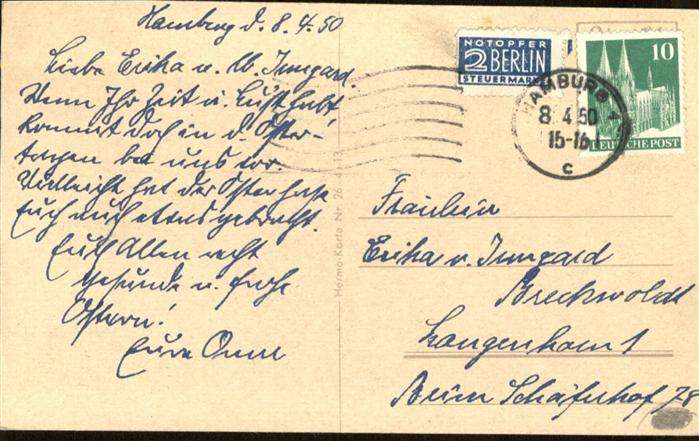 Hamburg d. 8.4.50
Liebe Erika u. Irmgard.
Wenn Ihr Zeit u. Lust habt
kommt doch in d. Oster-
tagen bei uns vor.
Vielleicht hat der Osterhase
Euch auch etwas gebracht.
Euch Allen recht
gesunde u. frohe
Ostern!
Eure
NOTOPFER
2 BERLIN
STEUERMARKE
10
DEUTSCHE POST
HAMBURG
8.4.50
15-16
c
Hermo-Karte Nr.
Fräulein
Erika u. Irmgard
Breckwoldt
Langenhorn 1
Beim Schäferhof 78